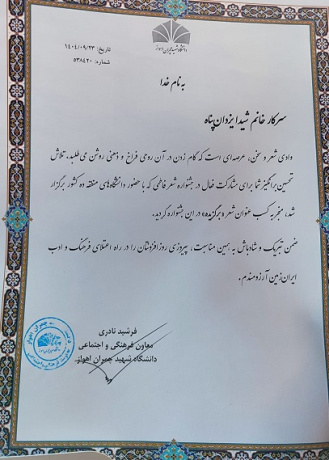 دانشگاه شهید چمران اهواز
تاریخ: ۱۴۰۴/۰۹/۲۳
شماره: ۵۳۸۴۲۰
به نام خدا
سرکار خانم شیدا ایزدان‌پناه
وادی شعر و سخن، عرصه‌ای است که گام زدن در آن روحی فراخ و ذهنی روشن می‌طلبد، تلاش
تحسین برانگیز شما برای مشارکت فعال در جشنواره شعر فاطمی که با حضور دانشگاه‌های منطقه ده کشور برگزار
شد، منجر به کسب عنوان شعر «برگزیده» در این جشنواره گردید.
ضمن تبریک و شادباش به همین مناسبت، پیروزی روزافزونتان را در راه اعتلای فرهنگ و ادب
ایران‌زمین آرزومندم.
فرشید نادری
معاون فرهنگی و اجتماعی
دانشگاه شهید چمران اهواز